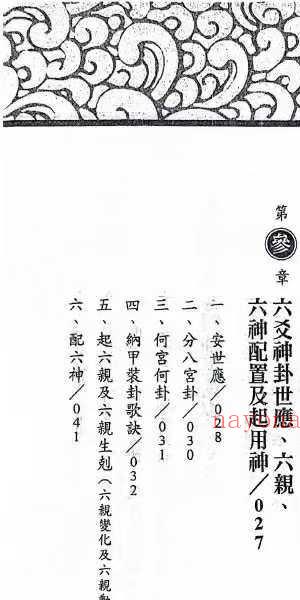 第參章
六爻神卦世應、六親、
六神配置及起用神/027
一、安世應/028
二、分八宮卦/030
三、何宮何卦/031
四、納甲裝卦歌訣/032
五、起六親及六親生剋(六親變化及六親動
六、配六神/041
nayona